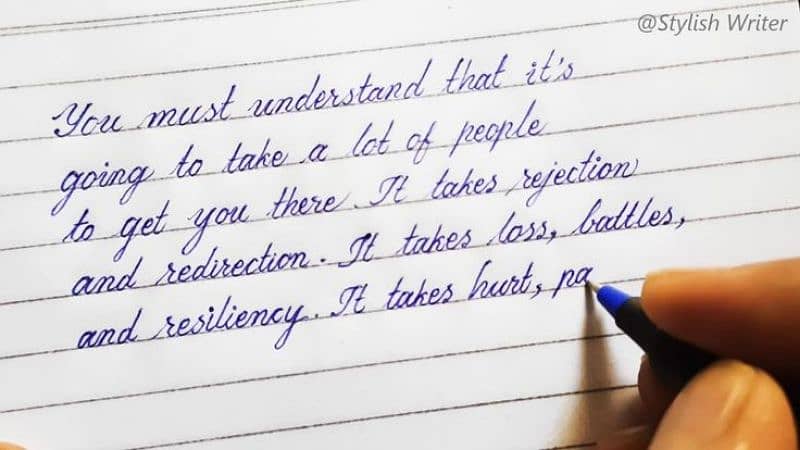 @Stylish Writer
You must understand that it's
going to take a lot of people
to get you there. It takes rejection
and redirection. It takes loss, battles,
and resiliency. It takes hurt, pa